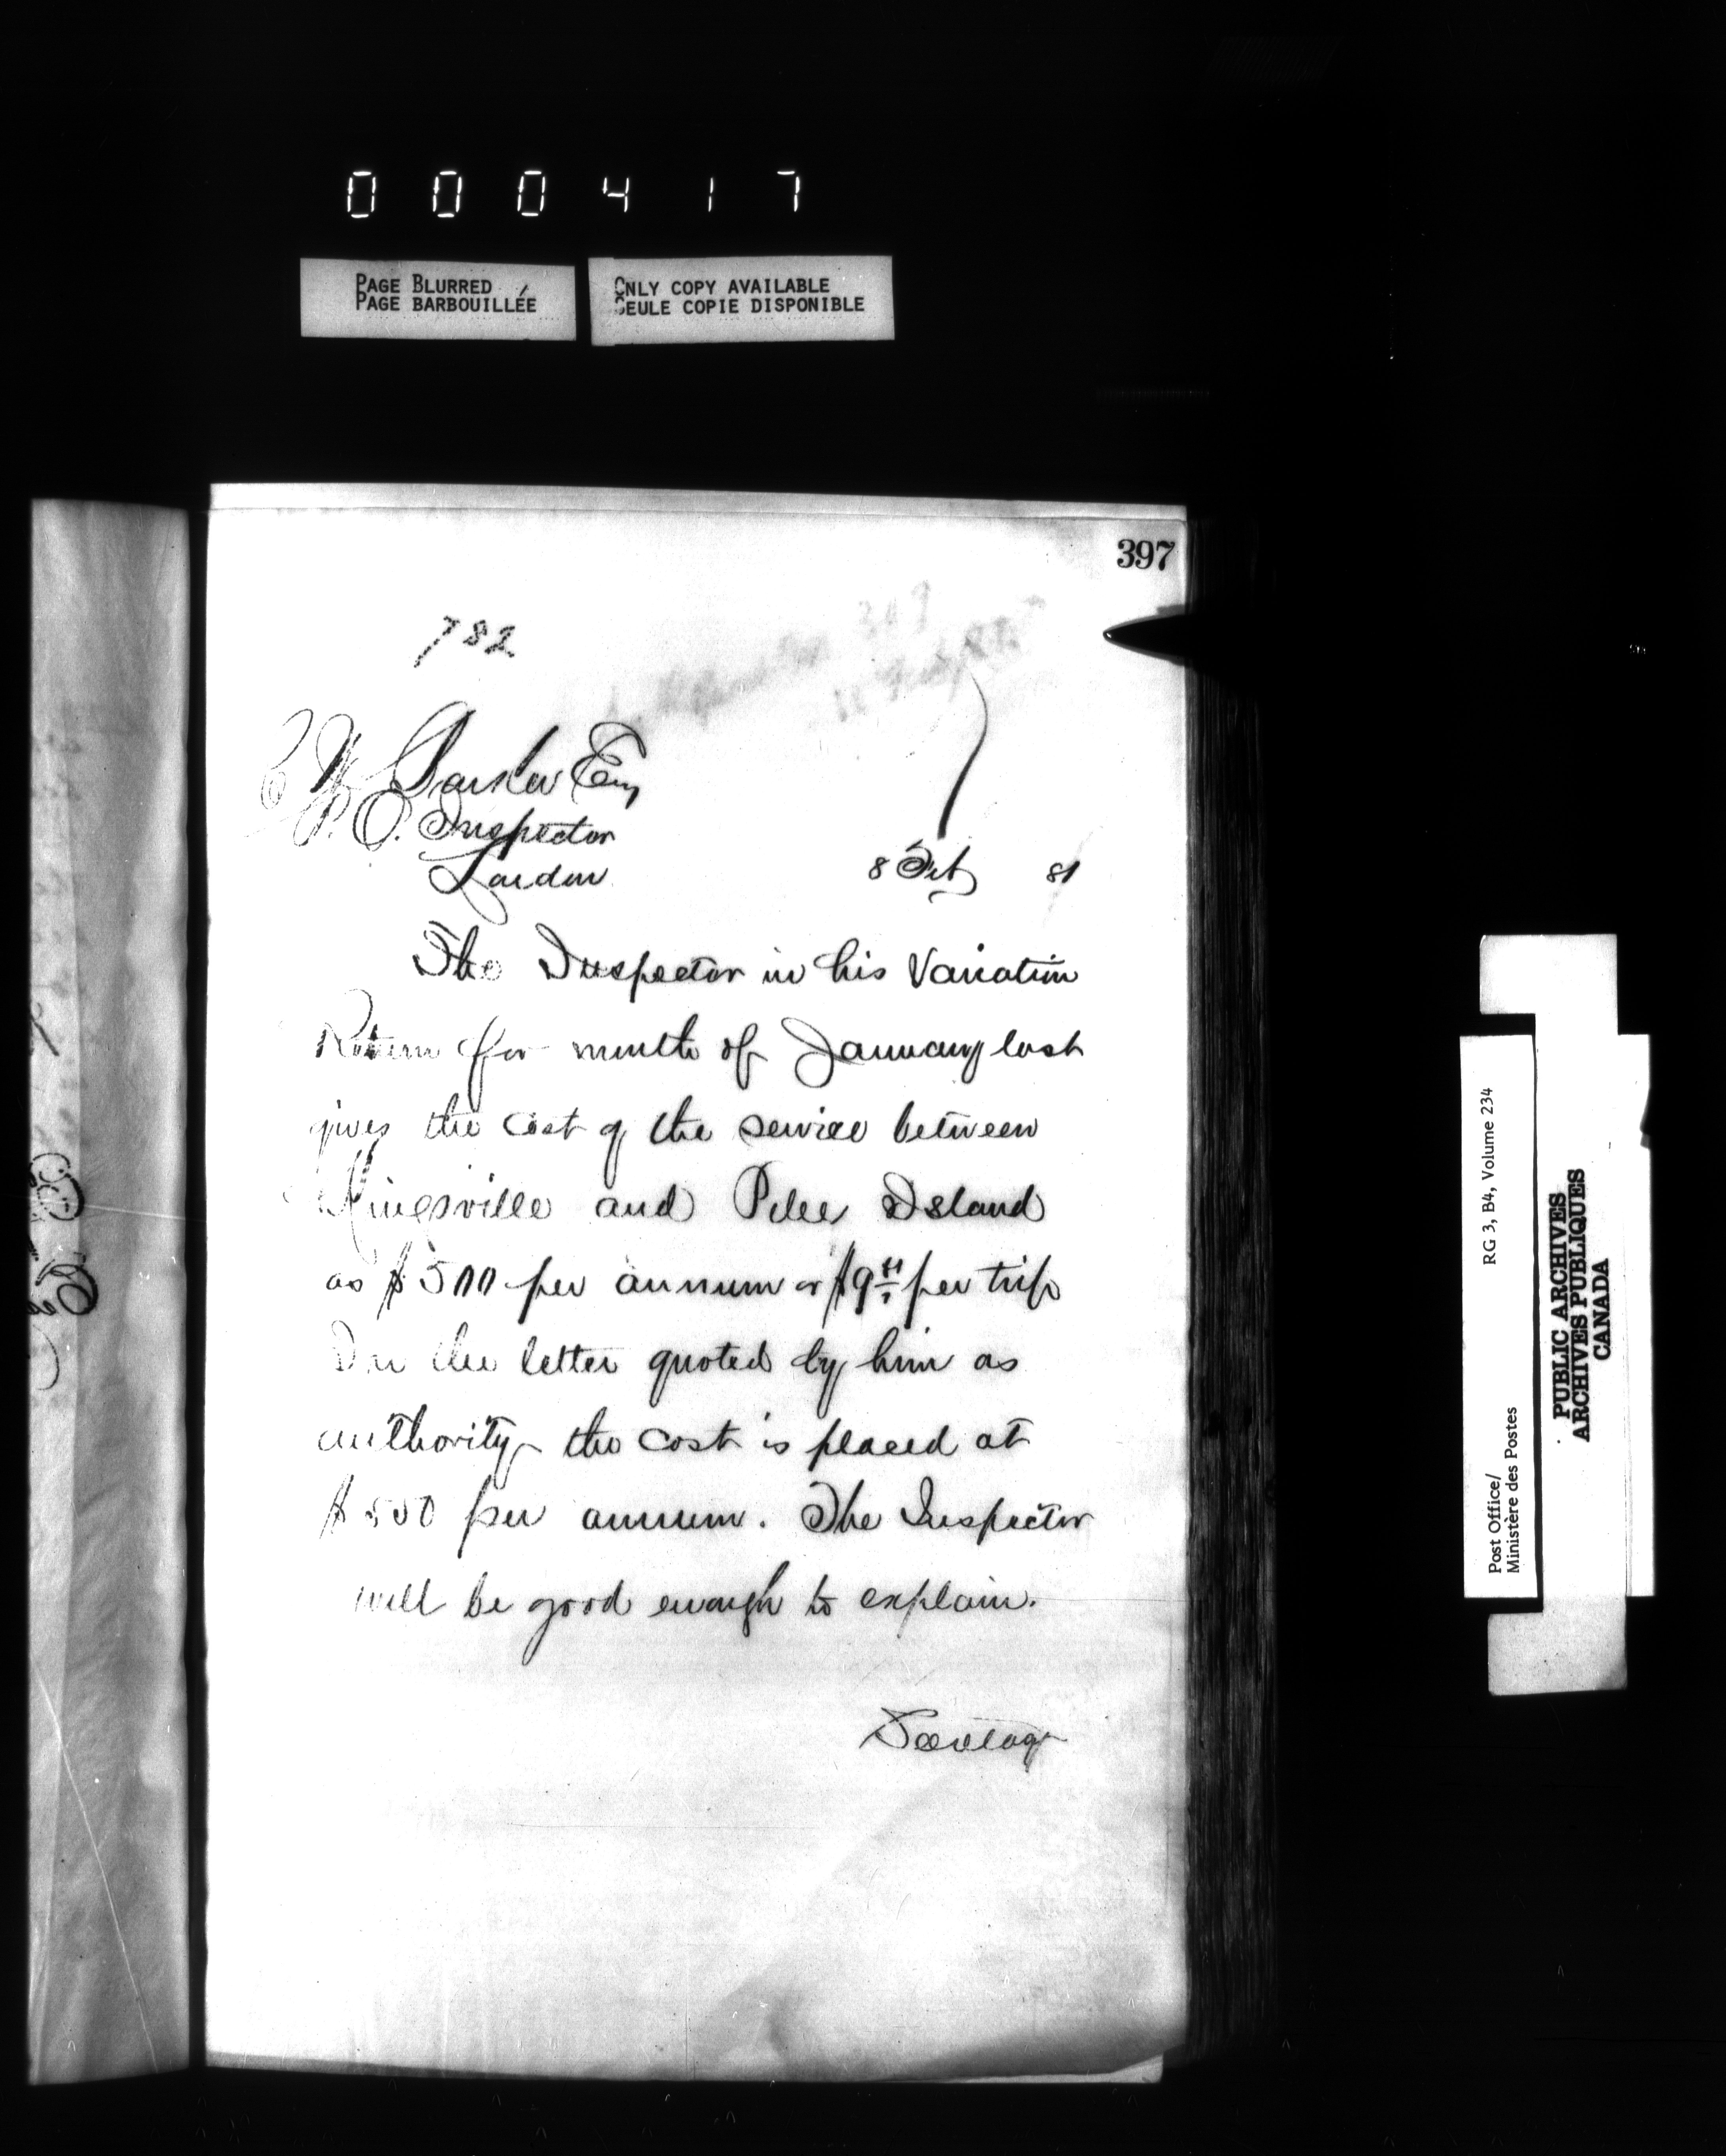 000417
PAGE BLURRED
PAGE BARBOUILLÉE
ONLY COPY AVAILABLE
SEULE COPIE DISPONIBLE
397
782
Barker Esq
P. O. Inspector
London
8 Feb 81
The Inspector in his Variation
Return for month of January last
gives the cost of the service between
Kingsville and Pelee Island
as $500 per annum or $9 per trip
In the letter quoted by him as
authority the cost is placed at
$550 per annum. The Inspector
will be good enough to explain.
Secretary
Post Office/ RG 3, B4, Volume 234
Ministère des Postes
PUBLIC ARCHIVES
ARCHIVES PUBLIQUES
CANADA